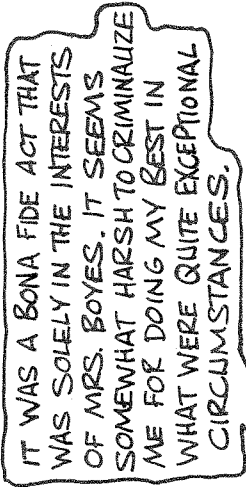 IT WAS A BONA FIDE ACT THAT
WAS SOLELY IN THE INTERESTS
OF MRS. BOYES. IT SEEMS
SOMEWHAT HARSH TO CRIMINALIZE
ME FOR DOING MY BEST IN
WHAT WERE QUITE EXCEPTIONAL
CIRCUMSTANCES.